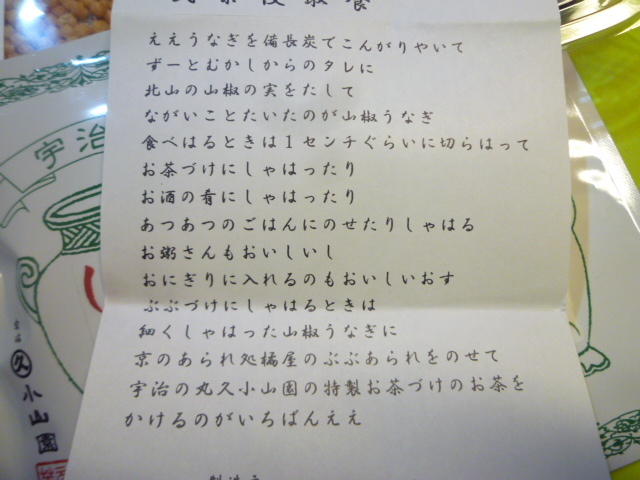 ええうなぎを備長炭でこんがりやいて
ずーとむかしからのタレに
北山の山椒の実をたして
ながいことたいたのが山椒うなぎ
食べはるときは1センチぐらいに切らはって
お茶づけにしゃはったり
お酒の肴にしゃはったり
あつあつのごはんにのせたりしゃはる
お粥さんもおいしいし
おにぎりに入れるのもおいしいおす
ぶぶづけにしゃはるときは
細くしゃはった山椒うなぎに
京のあられ処橘屋のぶぶあられをのせて
宇治の丸久小山園の特製お茶づけのお茶を
かけるのがいちばんええ
宇治
久
小山園